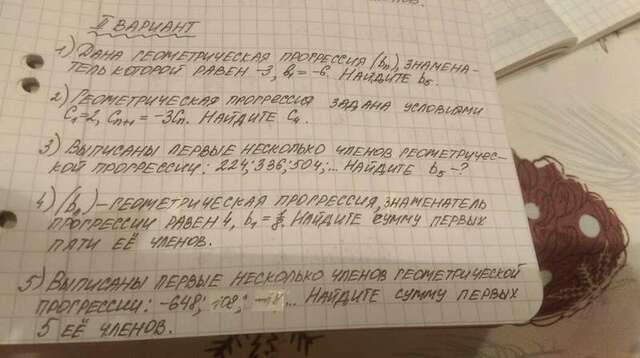 II ВАРИАНТ
1) ДАНА ГЕОМЕТРИЧЕСКАЯ ПРОГРЕССИЯ (bn), ЗНАМЕНА-
ТЕЛЬ КОТОРОЙ РАВЕН -3, b1 = -6. НАЙДИТЕ b5.
2) ГЕОМЕТРИЧЕСКАЯ ПРОГРЕССИЯ ЗАДАНА УСЛОВИЯМИ
C1=2, Cn+1 = -3Cn. НАЙДИТЕ C4.
3) ВЫПИСАНЫ ПЕРВЫЕ НЕСКОЛЬКО ЧЛЕНОВ ГЕОМЕТРИЧЕС-
КОЙ ПРОГРЕССИИ: 224; 336; 504;... НАЙДИТЕ b5-?
4) (bn)-ГЕОМЕТРИЧЕСКАЯ ПРОГРЕССИЯ, ЗНАМЕНАТЕЛЬ
ПРОГРЕССИИ РАВЕН 4, b1 = НАЙДИТЕ СУММУ ПЕРВЫХ
ПЯТИ ЕЁ ЧЛЕНОВ.
5) ВЫПИСАНЫ ПЕРВЫЕ НЕСКОЛЬКО ЧЛЕНОВ ГЕОМЕТРИЧЕСКОЙ
ПРОГРЕССИИ: -648; 108; -18... НАЙДИТЕ СУММУ ПЕРВЫХ
5 ЕЁ ЧЛЕНОВ.